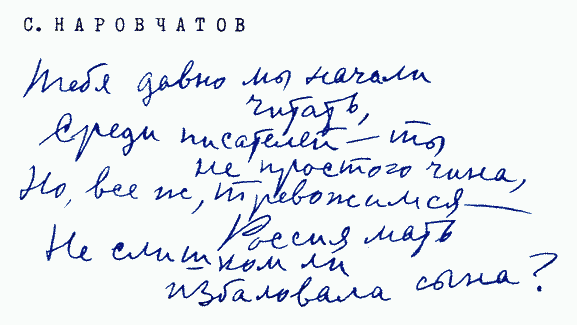 С. НАРОВЧАТОВ
Тебя давно мы начали
читать,
Среди писателей — ты
не простого чина,
Но, все ж, тревожимся —
Россия мать
Не слишком ли
избаловала сына?